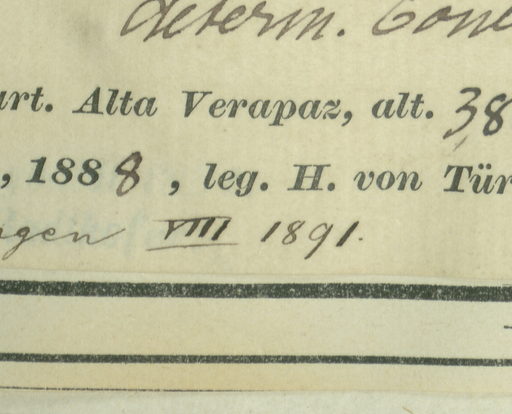 determ.
art. Alta Verapaz, alt. 38
, 1888, leg. H. von Tür
ngen VIII 1891.